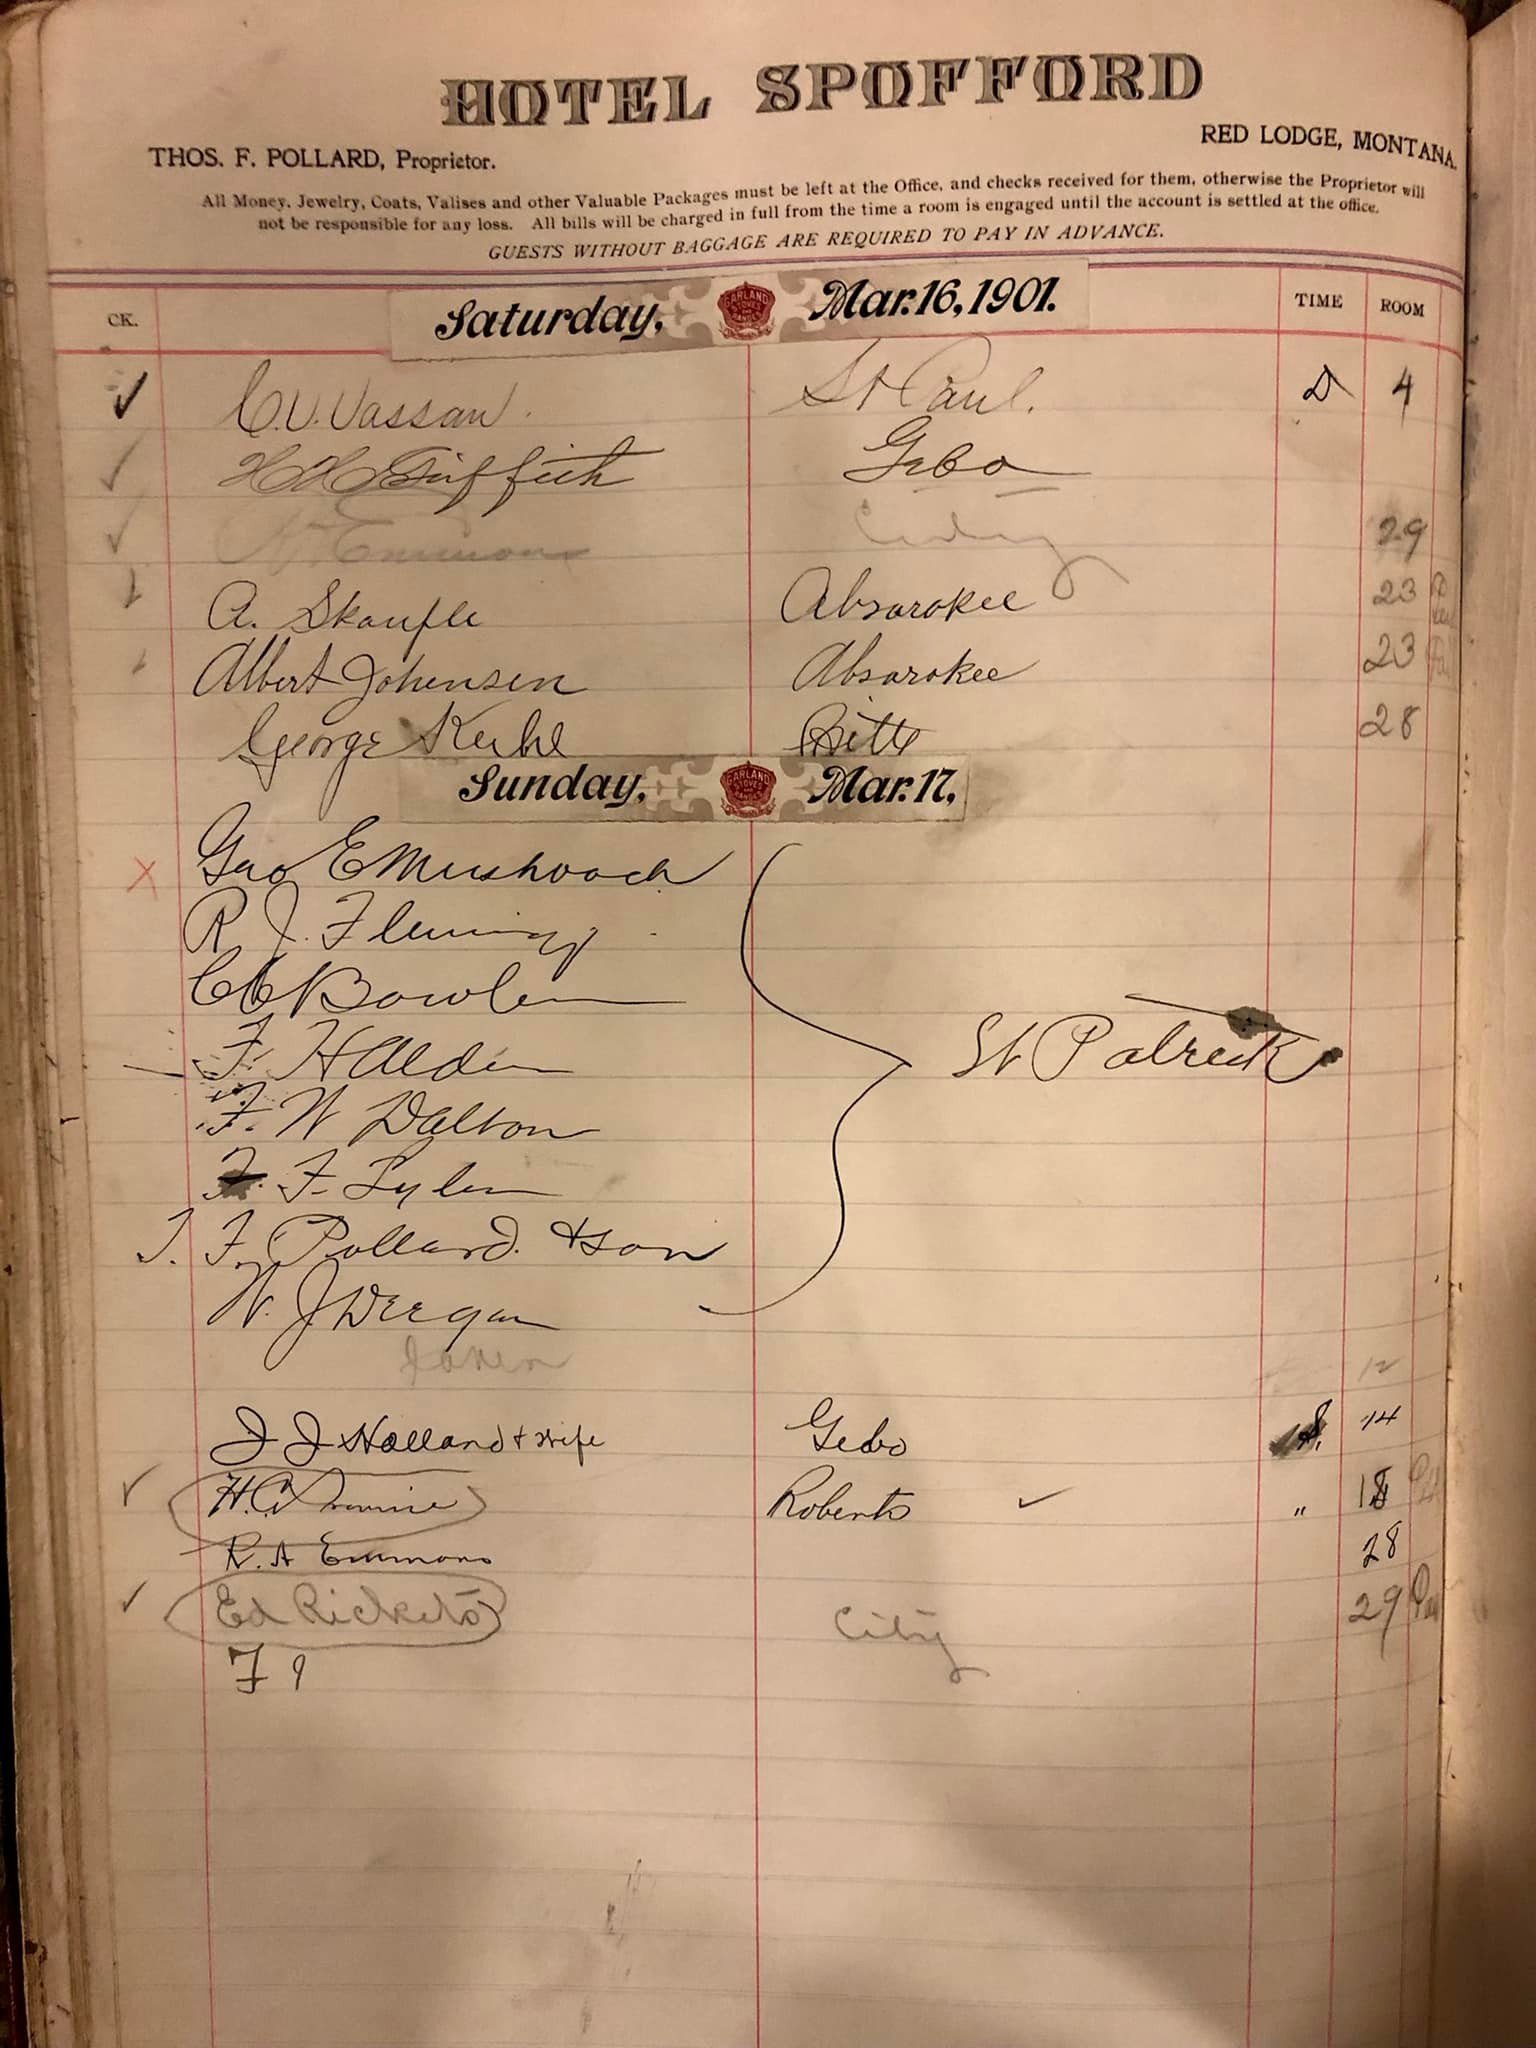 HOTEL SPOFFORD
THOS. F. POLLARD, Proprietor. RED LODGE, MONTANA.
All Money, Jewelry, Coats, Valises and other Valuable Packages must be left at the Office, and checks received for them, otherwise the Proprietor will
not be responsible for any loss. All bills will be charged in full from the time a room is engaged until the account is settled at the office.
GUESTS WITHOUT BAGGAGE ARE REQUIRED TO PAY IN ADVANCE.
CK. Saturday, GARLAND STOVES AND RANGES Mar. 16, 1901. TIME ROOM
C.V. Vassau. St Paul. D 4
H H Griffith Gebo
Emmons City 29
A. Skaufle Absarokee 23
Albert Johensen Absarokee 23
George Kuhl 28
Sunday, GARLAND STOVES AND RANGES Mar. 17,
Geo E Mushbach
R. J. Fleming
C C Bowlen
F. H Alden St Patrick
F. W Dalton
F. F. Lyle
T. F. Pollard. & son
W. J Deegan
12
J J Holland & Wife Gebo S. 14
H. C. Roberts " 18
R. A Emmons 28
Ed Rickets City 29
F